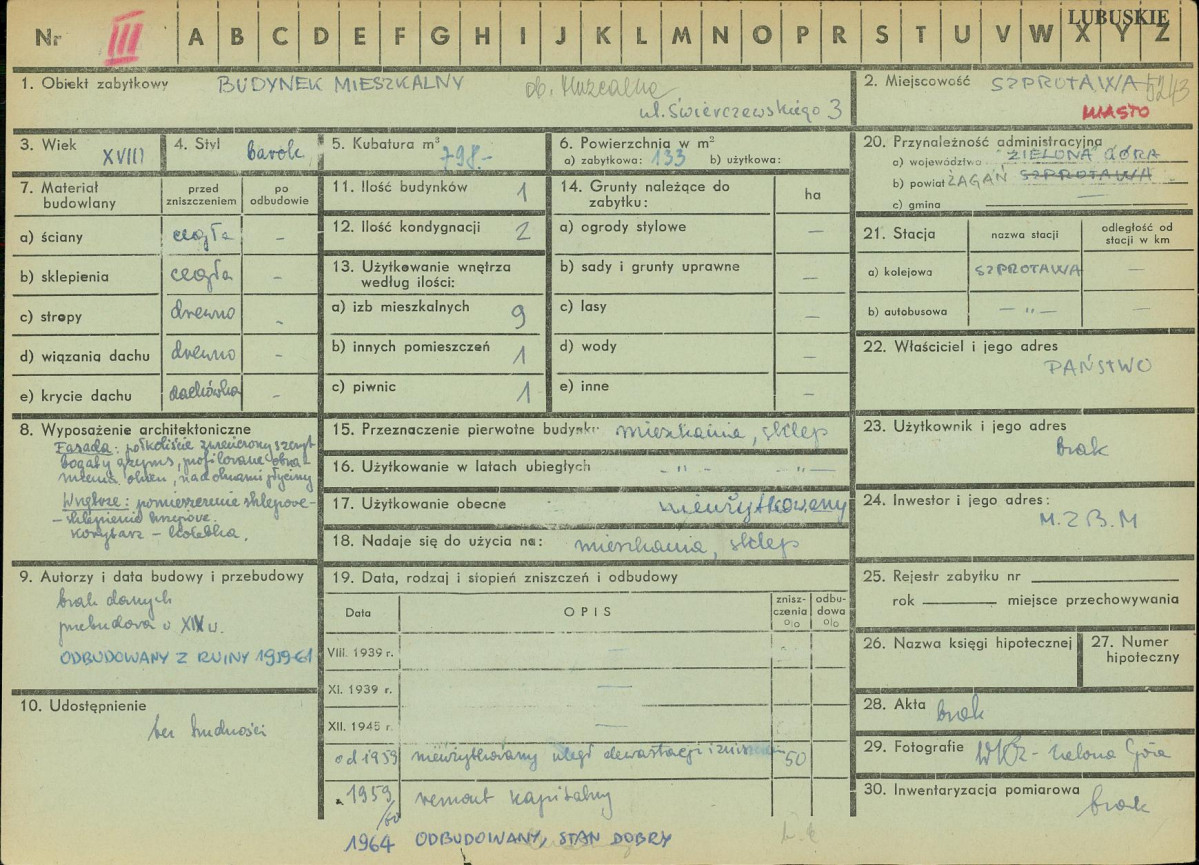 Nr III A B C D E F G H I J K L M N O P R S T U V W X Y Z LUBUSKIE
1. Obiekt zabytkowy BUDYNEK MIESZKALNY
ul. Świerczewskiego 3
2. Miejscowość SZPROTAWA 5243
MIASTO
3. Wiek XVIII
4. Styl barok
5. Kubatura m³ 798.-
6. Powierzchnia w m²
a) zabytkowa: 133 b) użytkowa:
20. Przynależność administracyjna
a) województwo ZIELONA GÓRA
b) powiat ŻAGAŃ SZPROTAWA
c) gmina —
7. Materiał budowlany
przed zniszczeniem
po odbudowie
a) ściany cegła –
b) sklepienia cegła –
c) stropy drewno –
d) wiązania dachu drewno –
e) krycie dachu dachówka –
11. Ilość budynków 1
12. Ilość kondygnacji 2
13. Użytkowanie wnętrza
według ilości:
a) izb mieszkalnych 9
b) innych pomieszczeń 1
c) piwnic 1
14. Grunty należące do
zabytku:
ha
a) ogrody stylowe —
b) sady i grunty uprawne —
c) lasy —
d) wody —
e) inne —
21. Stacja
nazwa stacji
odległość od
stacji w km
a) kolejowa SZPROTAWA —
b) autobusowa — " — —
22. Właściciel i jego adres
PAŃSTWO
8. Wyposażenie architektoniczne
Fasada: półkoliście zwieńczony szczyt
bogaty gzyms, profilowane obra-
mienia okien, nad oknami płyciny
Wnętrze: pomieszczenie sklepowe-
- sklepienie krzyżowe.
Korytarz – kolebka.
15. Przeznaczenie pierwotne budynku mieszkania, sklep
16. Użytkowanie w latach ubiegłych – " – – " –
17. Użytkowanie obecne nieużytkowany
18. Nadaje się do użycia na: mieszkania, sklep
23. Użytkownik i jego adres
brak
24. Inwestor i jego adres:
M.Z.B.M
9. Autorzy i data budowy i przebudowy
brak danych
przebudowa w XIX w.
ODBUDOWANY Z RUINY 1959-61
10. Udostępnienie
bez trudności
19. Data, rodzaj i stopień zniszczeń i odbudowy
Data OPIS
znisz-
czenia
o/o
odbu-
dowa
o/o
VIII. 1939 r. —
XI. 1939 r. —
XII. 1945 r. —
od 1959 nieużytkowany uległ dewastacji i zniszcze 50
1959/60 remont kapitalny
1964 ODBUDOWANY, STAN DOBRY
25. Rejestr zabytku nr
rok miejsce przechowywania
26. Nazwa księgi hipotecznej
27. Numer
hipoteczny
28. Akta brak
29. Fotografie WKZ – Zielona Góra
30. Inwentaryzacja pomiarowa
brak